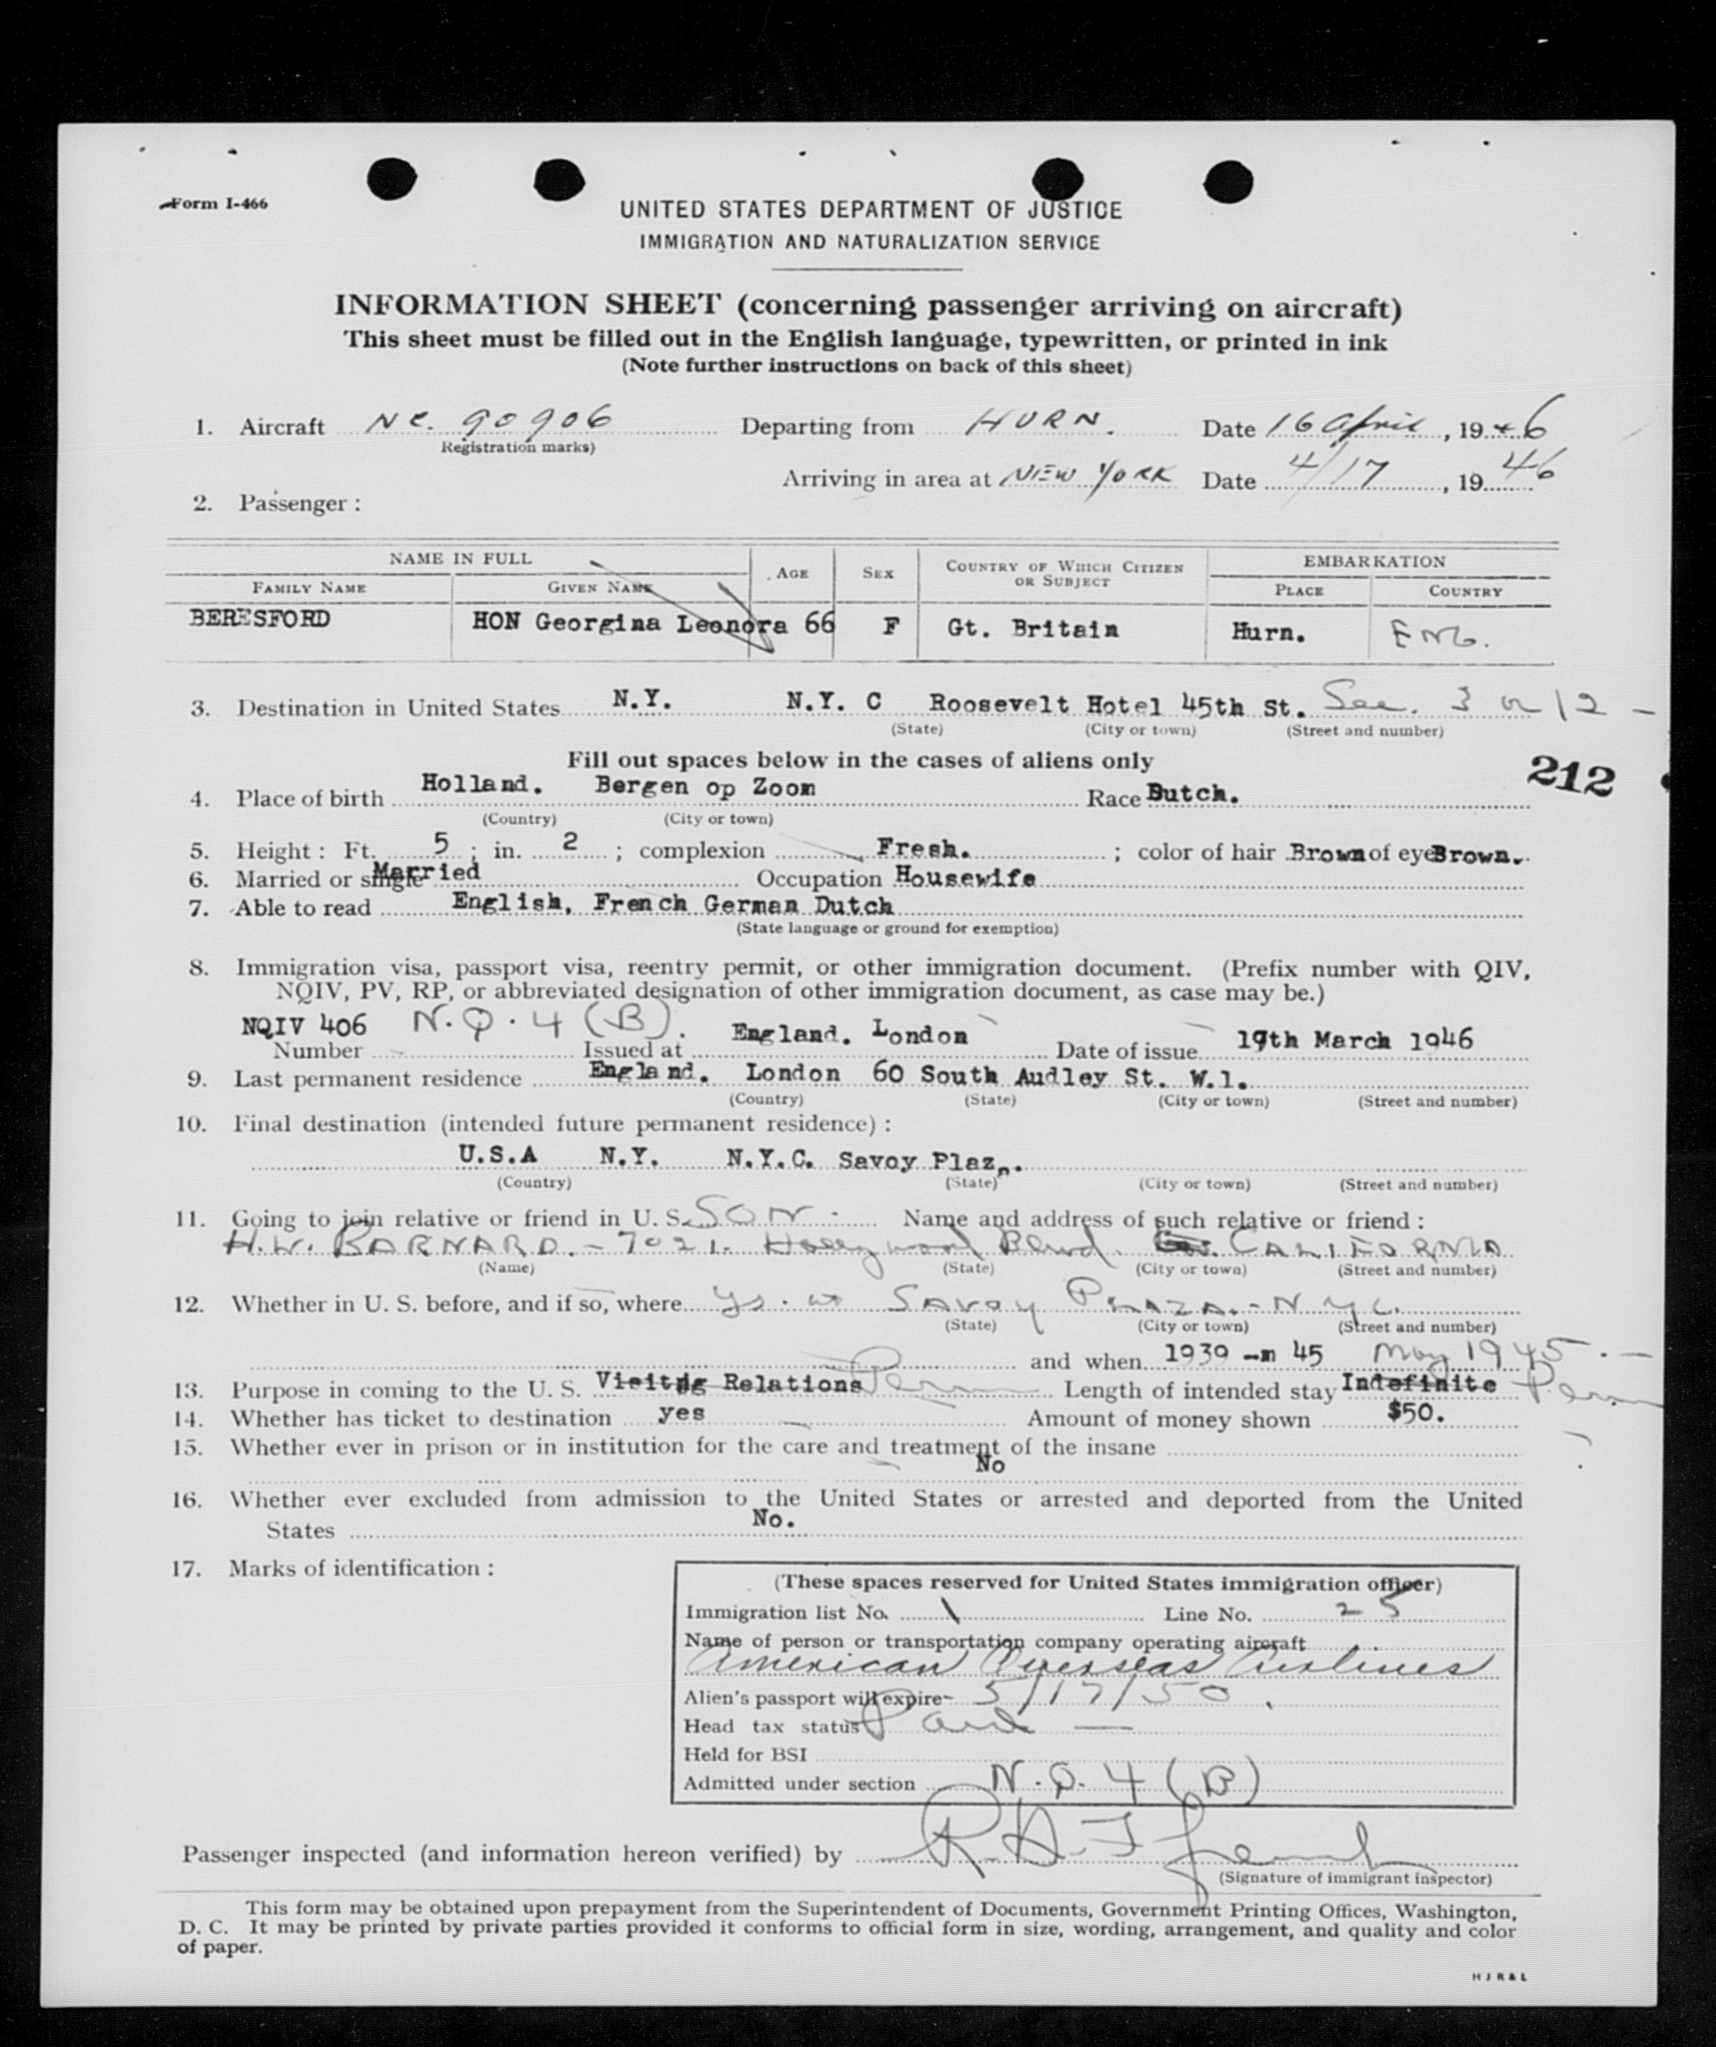 Form I-466
UNITED STATES DEPARTMENT OF JUSTICE
IMMIGRATION AND NATURALIZATION SERVICE
INFORMATION SHEET (concerning passenger arriving on aircraft)
This sheet must be filled out in the English language, typewritten, or printed in ink
(Note further instructions on back of this sheet)
1. Aircraft NC. 90906 Departing from HURN. Date 16 April, 1946
(Registration marks)
Arriving in area at NEW YORK Date 4/17, 1946
2. Passenger :
NAME IN FULL AGE SEX COUNTRY OF WHICH CITIZEN OR SUBJECT EMBARKATION
FAMILY NAME GIVEN NAME PLACE COUNTRY
BERESFORD HON Georgina Leonora 66 F Gt. Britain Hurn. ENG.
3. Destination in United States N.Y. N.Y. C Roosevelt Hotel 45th St. See. 3 or 12 -
(State) (City or town) (Street and number)
Fill out spaces below in the cases of aliens only
212
4. Place of birth Holland. Bergen op Zoom Race Dutch.
(Country) (City or town)
5. Height : Ft. 5 ; in. 2 ; complexion Fresh. ; color of hair Brown of eyes Brown.
6. Married or single Married Occupation Housewife
7. Able to read English, French German Dutch
(State language or ground for exemption)
8. Immigration visa, passport visa, reentry permit, or other immigration document. (Prefix number with QIV,
NQIV, PV, RP, or abbreviated designation of other immigration document, as case may be.)
Number NQIV 406 N.Q.4 (B). Issued at England. London Date of issue 19th March 1946
9. Last permanent residence England. London 60 South Audley St. W.1.
(Country) (State) (City or town) (Street and number)
10. Final destination (intended future permanent residence) :
U.S.A N.Y. N.Y.C. Savoy Plaz
(Country) (State) (City or town) (Street and number)
11. Going to join relative or friend in U. S. SON. Name and address of such relative or friend :
H.W. BARNARD. - 7021. Hollywood Blvd. CALIFORNIA
(Name) (State) (City or town) (Street and number)
12. Whether in U. S. before, and if so, where SAVOY PLAZA. - N.Y.C.
(State) (City or town) (Street and number)
and when 1939 - 45 May 1945. -
13. Purpose in coming to the U. S. Visiting Relations Perm Length of intended stay Indefinite Perm
14. Whether has ticket to destination yes Amount of money shown $50.
15. Whether ever in prison or in institution for the care and treatment of the insane
No
16. Whether ever excluded from admission to the United States or arrested and deported from the United
States No.
17. Marks of identification :
(These spaces reserved for United States immigration officer)
Immigration list No. 1 Line No. 25
Name of person or transportation company operating aircraft
American Overseas Airlines
Alien's passport will expire 5/17/50.
Head tax status Paid -
Held for BSI
Admitted under section N.Q. 4 (B)
Passenger inspected (and information hereon verified) by
(Signature of immigrant inspector)
This form may be obtained upon prepayment from the Superintendent of Documents, Government Printing Offices, Washington,
D. C. It may be printed by private parties provided it conforms to official form in size, wording, arrangement, and quality and color
of paper.
H J R & L